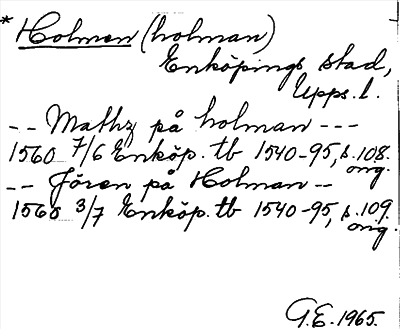 * Holmen (holman)
Enköpings stad,
Upps. l.
-- Mathz på holman ---
1560 7/6 Enköp. tb 1540-95, s. 108.
orig.
-- Jören på Holman --
1565 3/7 Enköp. tb 1540-95, s. 109.
orig.
G.E. 1965.